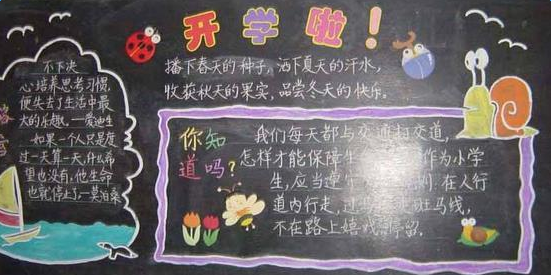 开学啦！
播下春天的种子，洒下夏天的汗水，
收获秋天的果实，品尝冬天的快乐。
不下决
心培养思考习惯，
便失去了生活中最
大的乐趣。—爱迪生
如果一个人只是度
过一天算一天，什么希
望也没有，他生命
也就停止了。—莫泊桑
你知
道吗？
我们每天都与交通打交道，
怎样才能保障 作为小学
生，应当遵 在人行
道内行走，过 斑马线，
不在路上嬉戏 停留。